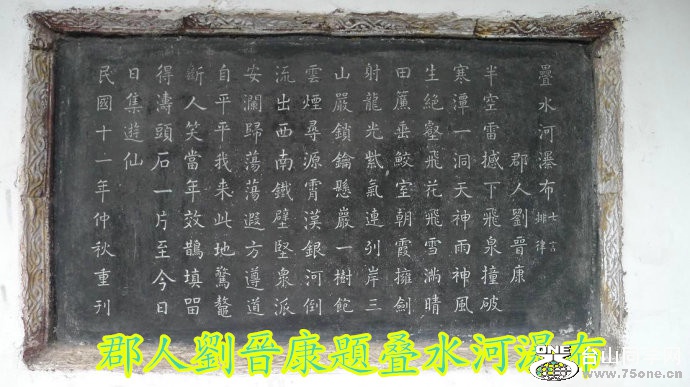 疊水河瀑布 七言排律
郡人劉晉康
半空雷撼下飛泉撞破
寒潭一洞天神雨神風
生絕壑飛花飛雪滿晴
田簾垂鮫室朝霞擁劍
射龍光紫氣連引岸三
山嚴鎖鑰懸巖一樹飽
雲煙尋源霄漢銀河倒
流出西南鐵壁堅衆派
安瀾歸蕩蕩遐方遵道
自平平我来此地驚鼇
斷人笑當年效鵲填留
得濤頭石一片至今日
日集遊仙
民國十一年仲秋重刋
郡人劉晉康題叠水河瀑布
ONE
台山
www.75one.cn